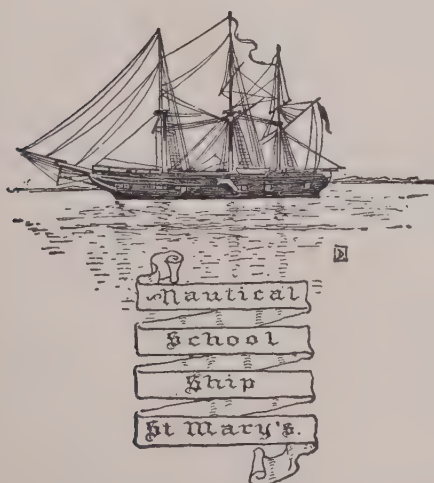 Nautical
School
Ship
St Mary's.